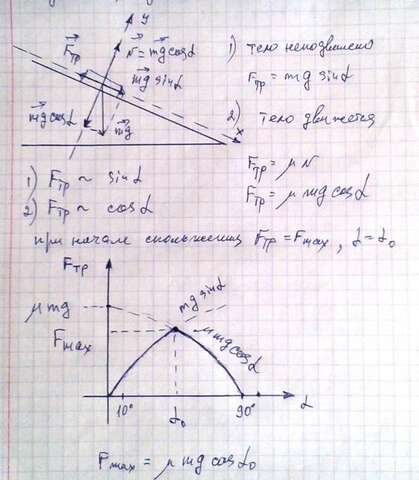 y
F⃗тр
N⃗ = m⃗g cosα
m⃗g sinα
m⃗g cosα
m⃗g
x
1) тело неподвижно
Fтр = mg sinα
2) тело движется
Fтр = μN
Fтр = μ mg cosα
1) Fтр ~ sinα
2) Fтр ~ cosα
при начале скольжения Fтр = Fmax, α = α₀
Fтр
μ mg
Fmax
mg sinα
μ mg cosα
10°
α₀
90°
α
Fmax = μ mg cosα₀